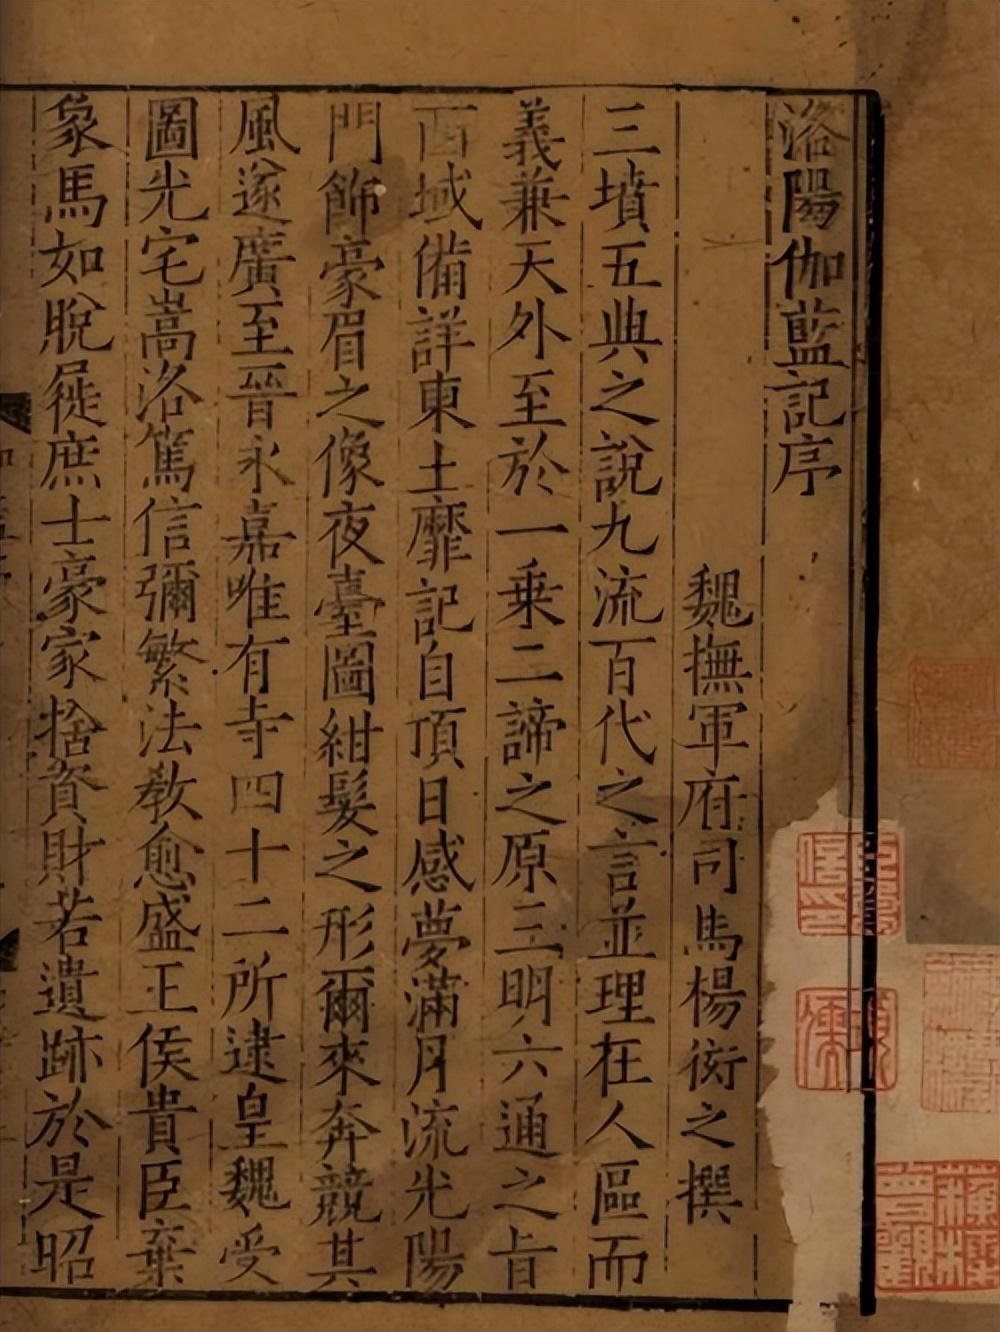 洛陽伽藍記序
魏撫軍府司馬楊衒之撰
三墳五典之說九流百代之言並理在人區而
義兼天外至於一乗二諦之原三明六通之旨
西域備詳東土靡記自頂日感夢滿月流光陽
門飾豪眉之像夜臺圖紺髮之形爾來奔競其
風遂廣至晉永嘉唯有寺四十二所逮皇魏受
圖光宅嵩洛篤信彌繁法教愈盛王侯貴臣棄
象馬如脫屣庶士豪家捨資財若遺跡於是昭